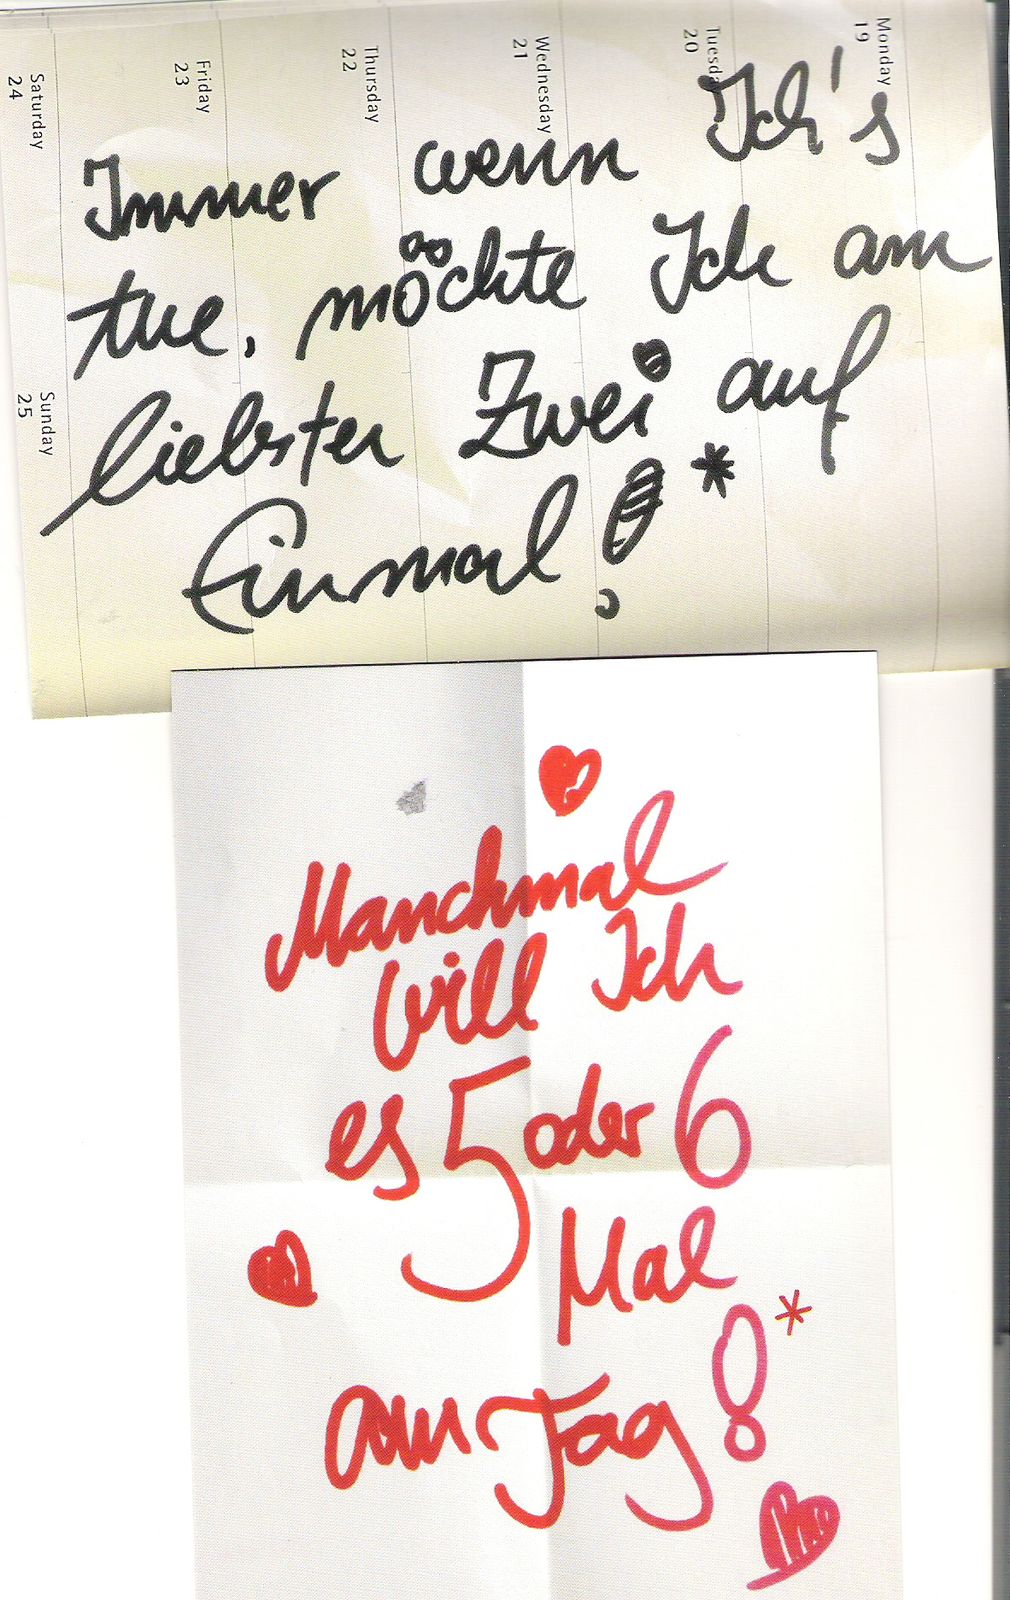 Monday
19
Tuesday
20
Wednesday
21
Thursday
22
Friday
23
Saturday
24
Sunday
25
Immer wenn Ich's
tue, möchte Ich am
liebsten Zwei auf
Einmal!*
Manchmal
will Ich
es 5 oder 6
Mal
am Tag!*